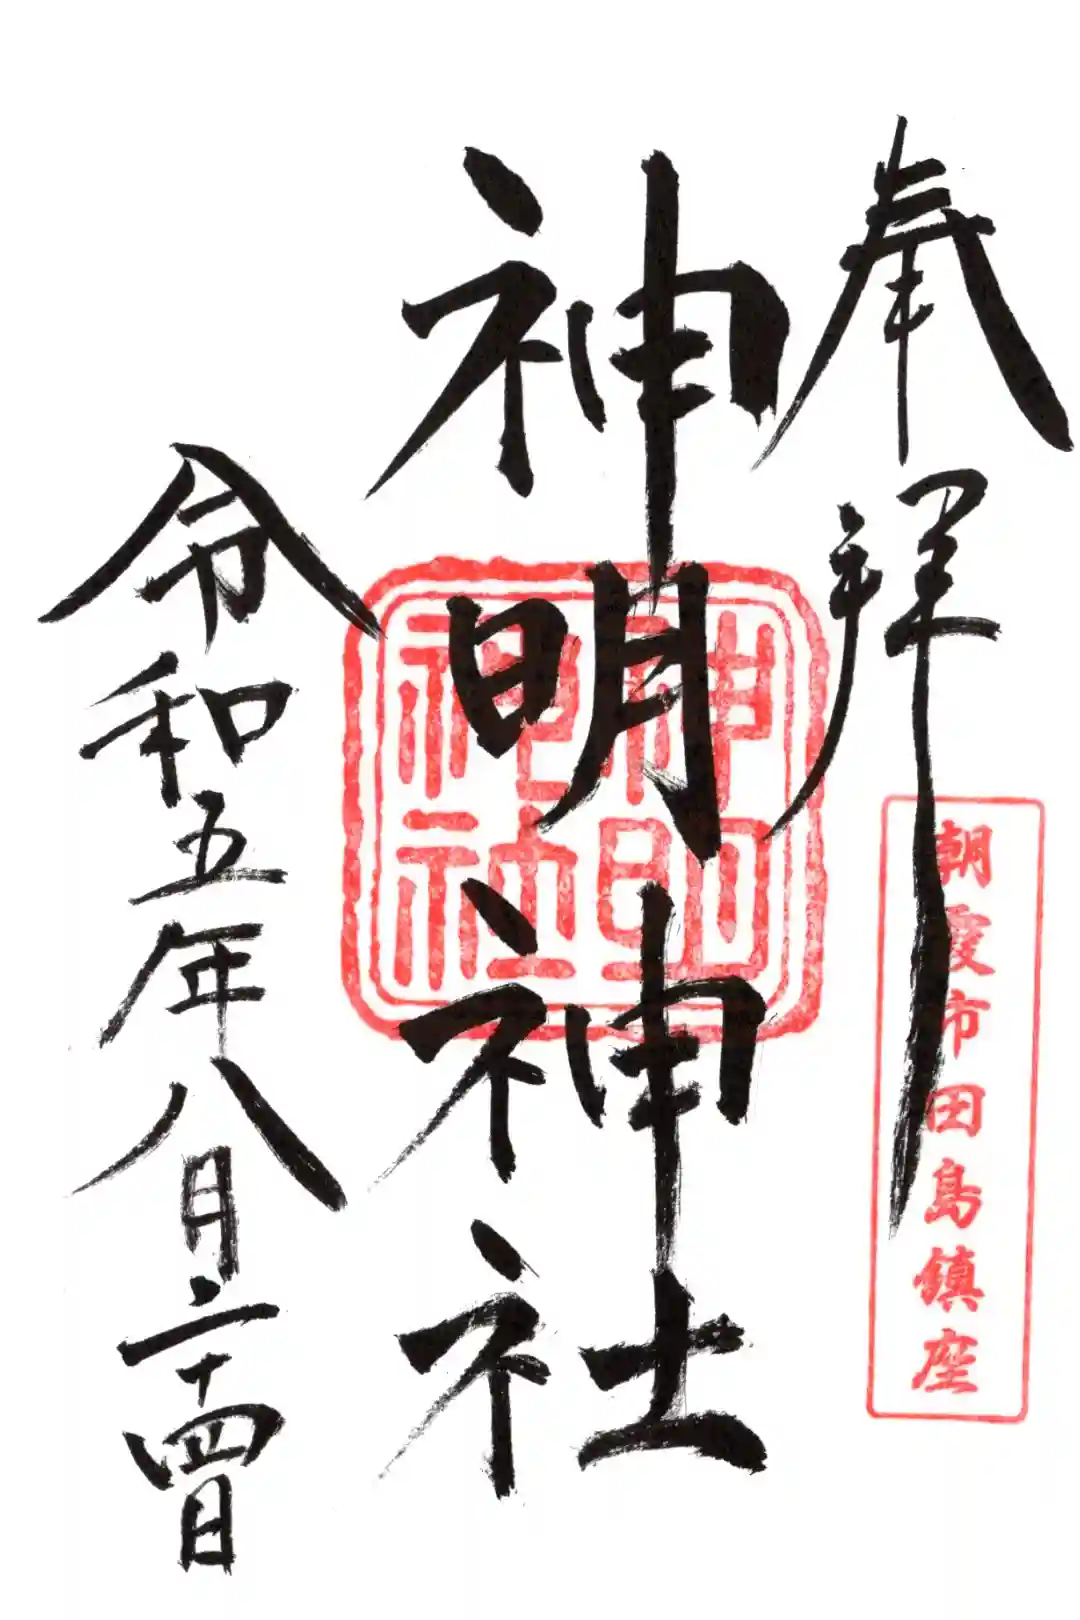 奉拝
朝霞市田島鎮座
神明神社
神明神社
令和五年八月二十四日